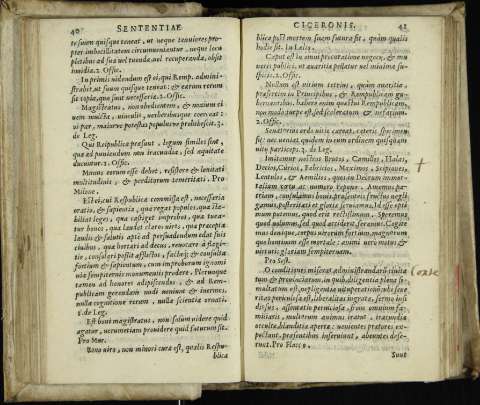 40 SENTENTIAE
te suum quisque teneat, ut neque tenuiores pro=
pter imbecillitatem circumueniantur, neque locu
pletibus ad sua uel tenenda, uel recuperanda, obsit
inuidia. 2. Offic.
In primis uidendum est ei, qui Remp. admini=
strabit, ut suum quisque teneat: & earum rerum
sit copia, quae sunt necessariae. 2. Offic.
Magistratus, non obedientem, & noxium ci
uem mulcta, uinculis, uerberibusque coerceat:
ni par, maiorue potestas populusue prohibescit. 3.
de Leg.
Qui Reipublicae praesunt, legum similes sint,
qua ad puniendum non iracundia, sed aequitate
ducuntur. 1. Offic.
Munus eorum esse debet, resistere & leuitati
multitudinis, & perditorum temeritati. Pro
Milone.
Est ei, cui Respublica commissa est, necessaria
oratio, & sapientia, quae regat populos, quae sta=
biliat leges, quae castiget improbos, quae tuea=
tur bonos, quae laudet claros uiros, quae praecepta
laudis & salutis apte ad persuadendum edat suis
ciuibus, quae hortari ad decus, reuocare à flagi=
tio, consolari possit afflictos, factaque & consulta
fortium & sapientum, cum improborum ignomi
nia sempiternis monumentis prodere. Plerunque
tamen ad honores adipiscendos, & ad Rem=
publicam gerendam nudi ueniunt & inermes,
nulla cognitione rerum, nulla scientia ornati.
1. de Leg.
Est boni magistratus, non solum uidere quid
agatur, uerumetiam prouidere quid futurum sit.
Pro Mur.
Bono uiro, non minori curae est, qualis Respu=
blica
CICERONIS. 41
blica post mortem suam futura sit, quàm qualis
hodie sit. In Lelio.
Caput est in omni procuratione negocij, & mu
neris publici, ut auaritia pellatur uel minima su=
spicio. 2. Offic.
Nullum est uitium tetrius, quàm auaritia,
praesertim in Principibus, & Rempublicam gu=
bernantibus. habere enim quaestui Rempublicam,
non modo turpe est, sed sceleratum & nefarium.
2. Offic.
Senatorius ordo uitio careat, ceteris specimen
sit: nec ueniat quidem in eum ordinem quisquam
uitij particeps. 3. de Leg.
Imitemur nostros Brutos, Camillos, Halas,
Decios, Curios, Fabricios, Maximos, Scipiones,
Lentulos, & Aemilios, quos in Deorum immor=
talium coetu ac numero repono. Amemus pa=
triam, consulamus bonis, praesentes fructus negli=
gamus, posteritati et gloriae seruiamus. Id esse opti
mum putemus, quod erit rectissimum. Speremus,
quae uolumus, sed quod acciderit, feramus. Cogite
mus denique, corpus uirorum fortium, magnorum
que hominum esse mortale: animi uero motus &
uirtutis gloriam sempiternam.
Pro Sest.
O conditiones miseras administrandarum ciuita
tum & prouinciarum, in quibus diligentia plena si=
multatum est, negligentia uituperationis: ubi seue
ritas periculosa est, liberalitas ingrata, sermo insi
diosus, assentatio perniciosa, frons omnium fa=
miliaris, multorum animus iratus, iracundiae
occultae, blanditiae apertae: uenientes praetores ex=
pectant, praesentibus inseruiunt, abeuntes dese=
runt. Pro Flacco.
Sunt